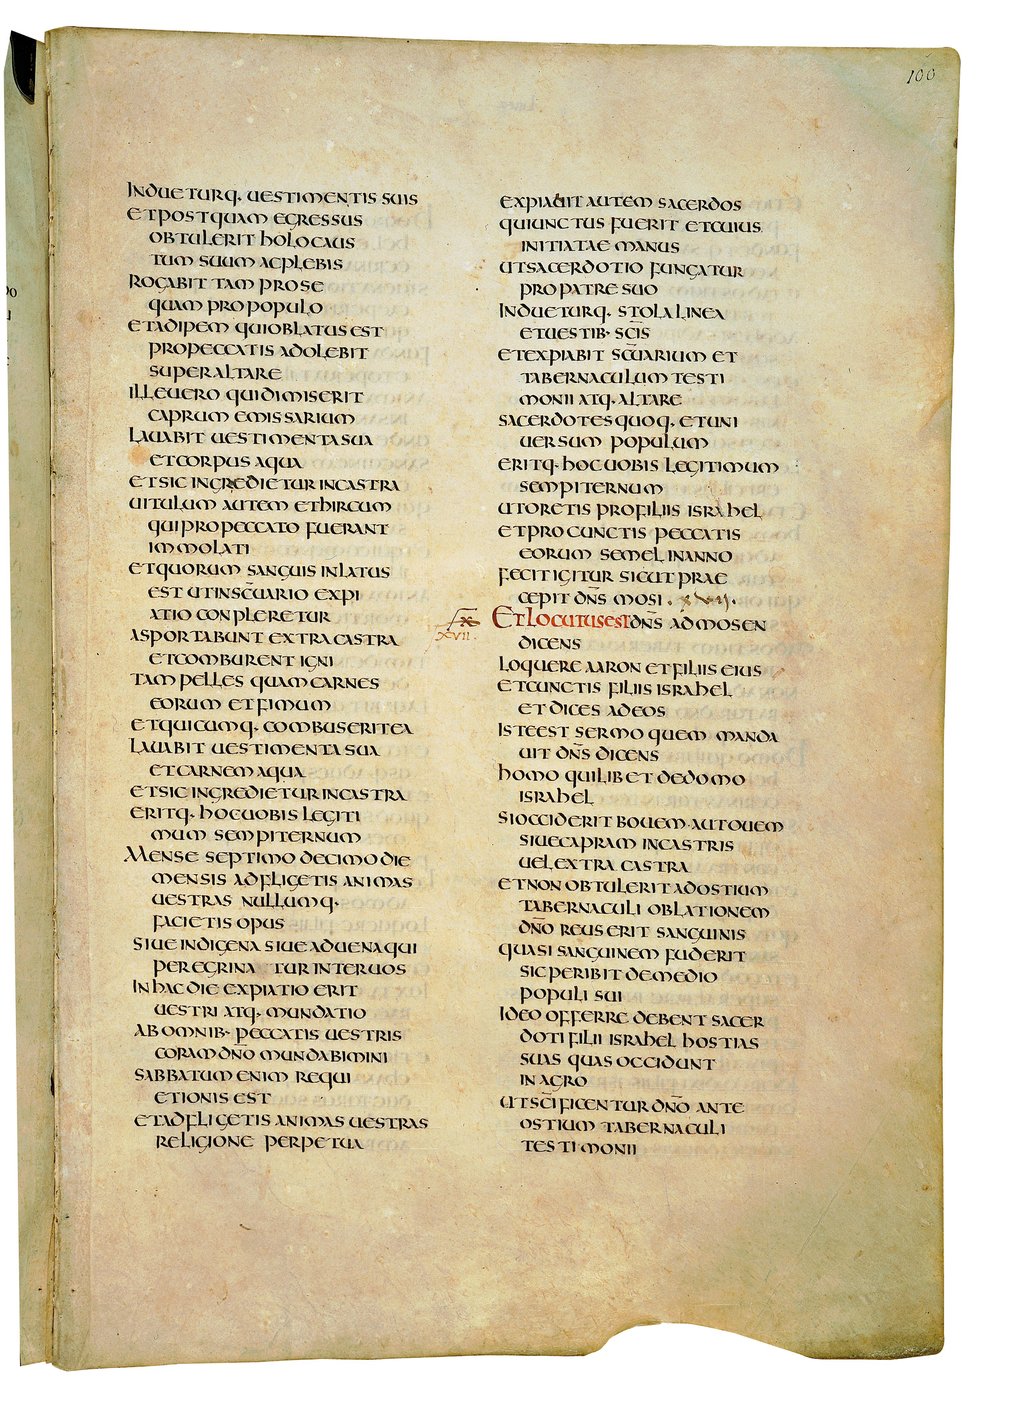 100
INDUETURQ· UESTIMENTIS SUIS
ETPOSTQUAM EGRESSUS
OBTULERIT HOLOCAUS
TUM SUUM ACPLEBIS
ROGABIT TAM PRO SE
QUAM PRO POPULO
ETADIPEM QUIOBLATUS EST
PROPECCATIS ADOLEBIT
SUPERALTARE
ILLEUERO QUIDIMISERIT
CAPRUM EMISSARIUM
LAUABIT UESTIMENTA SUA
ETCORPUS AQUA
ETSIC INGREDIETUR INCASTRA
UITULUM AUTEM ETHIRCUM
QUIPROPECCATO FUERANT
IMMOLATI
ETQUORUM SANGUIS INLATUS
EST UTINSC̄UARIO EXPI
ATIO CONPLERETUR
ASPORTABUNT EXTRA CASTRA
ETCOMBURENT IGNI
TAM PELLES QUAM CARNES
EORUM ET FIMUM
ETQUICUMQ· COMBUSERIT EA
LAUABIT UESTIMENTA SUA
ETCARNEM AQUA
ETSIC INGREDIETUR INCASTRA
ERITQ· HOCUOBIS LEGITI
MUM SEMPITERNUM
MENSE SEPTIMO DECIMO DIE
MENSIS ADFLIGETIS ANIMAS
UESTRAS NULLUMQ·
FACIETIS OPUS
SIUE INDIGENA SIUE ADUENA QUI
PEREGRINA TUR INTER UOS
IN HAC DIE EXPIATIO ERIT
UESTRI ATQ· MUNDATIO
AB OMNIB· PECCATIS UESTRIS
CORAM DN̄O MUNDABIMINI
SABBATUM ENIM REQUI
ETIONIS EST
ETADFLIGETIS ANIMAS UESTRAS
RELIGIONE PERPETUA
EXPIABIT AUTEM SACERDOS
QUIUNCTUS FUERIT ETCUIUS
INITIATAE MANUS
UTSACERDOTIO FUNGATUR
PRO PATRE SUO
INDUETURQ· STOLA LINEA
ETUESTIB· SC̄IS
ETEXPIABIT SC̄UARIUM ET
TABERNACULUM TESTI
MONII ATQ· ALTARE
SACERDOTES QUOQ· ET UNI
UERSUM POPULUM
ERITQ· HOC UOBIS LEGITIMUM
SEMPITERNUM
UTORETIS PROFILIIS ISRAHEL
ETPRO CUNCTIS PECCATIS
EORUM SEMEL INANNO
FECIT IGITUR SICUT PRAE
CEPIT DN̄S MOSI · XVII ·
XVII.
ET LOCUTUS EST DN̄S AD MOSEN
DICENS
LOQUERE AARON ET FILIIS EIUS
ETCUNCTIS FILIIS ISRAHEL
ET DICES AD EOS
ISTEEST SERMO QUEM MANDA
UIT DN̄S DICENS
HOMO QUILIBET DEDOMO
ISRAHEL
SIOCCIDERIT BOUEM AUT OUEM
SIUECAPRAM INCASTRIS
UEL EXTRA CASTRA
ETNON OBTULERIT ADOSTIUM
TABERNACULI OBLATIONEM
DN̄O REUS ERIT SANGUINIS
QUASI SANGUINEM FUDERIT
SIC PERIBIT DEMEDIO
POPULI SUI
IDEO OFFERRE DEBENT SACER
DOTI FILII ISRAHEL HOSTIAS
SUAS QUAS OCCIDUNT
IN AGRO
UTSC̄IFICENTUR DN̄O ANTE
OSTIUM TABERNACULI
TESTIMONII